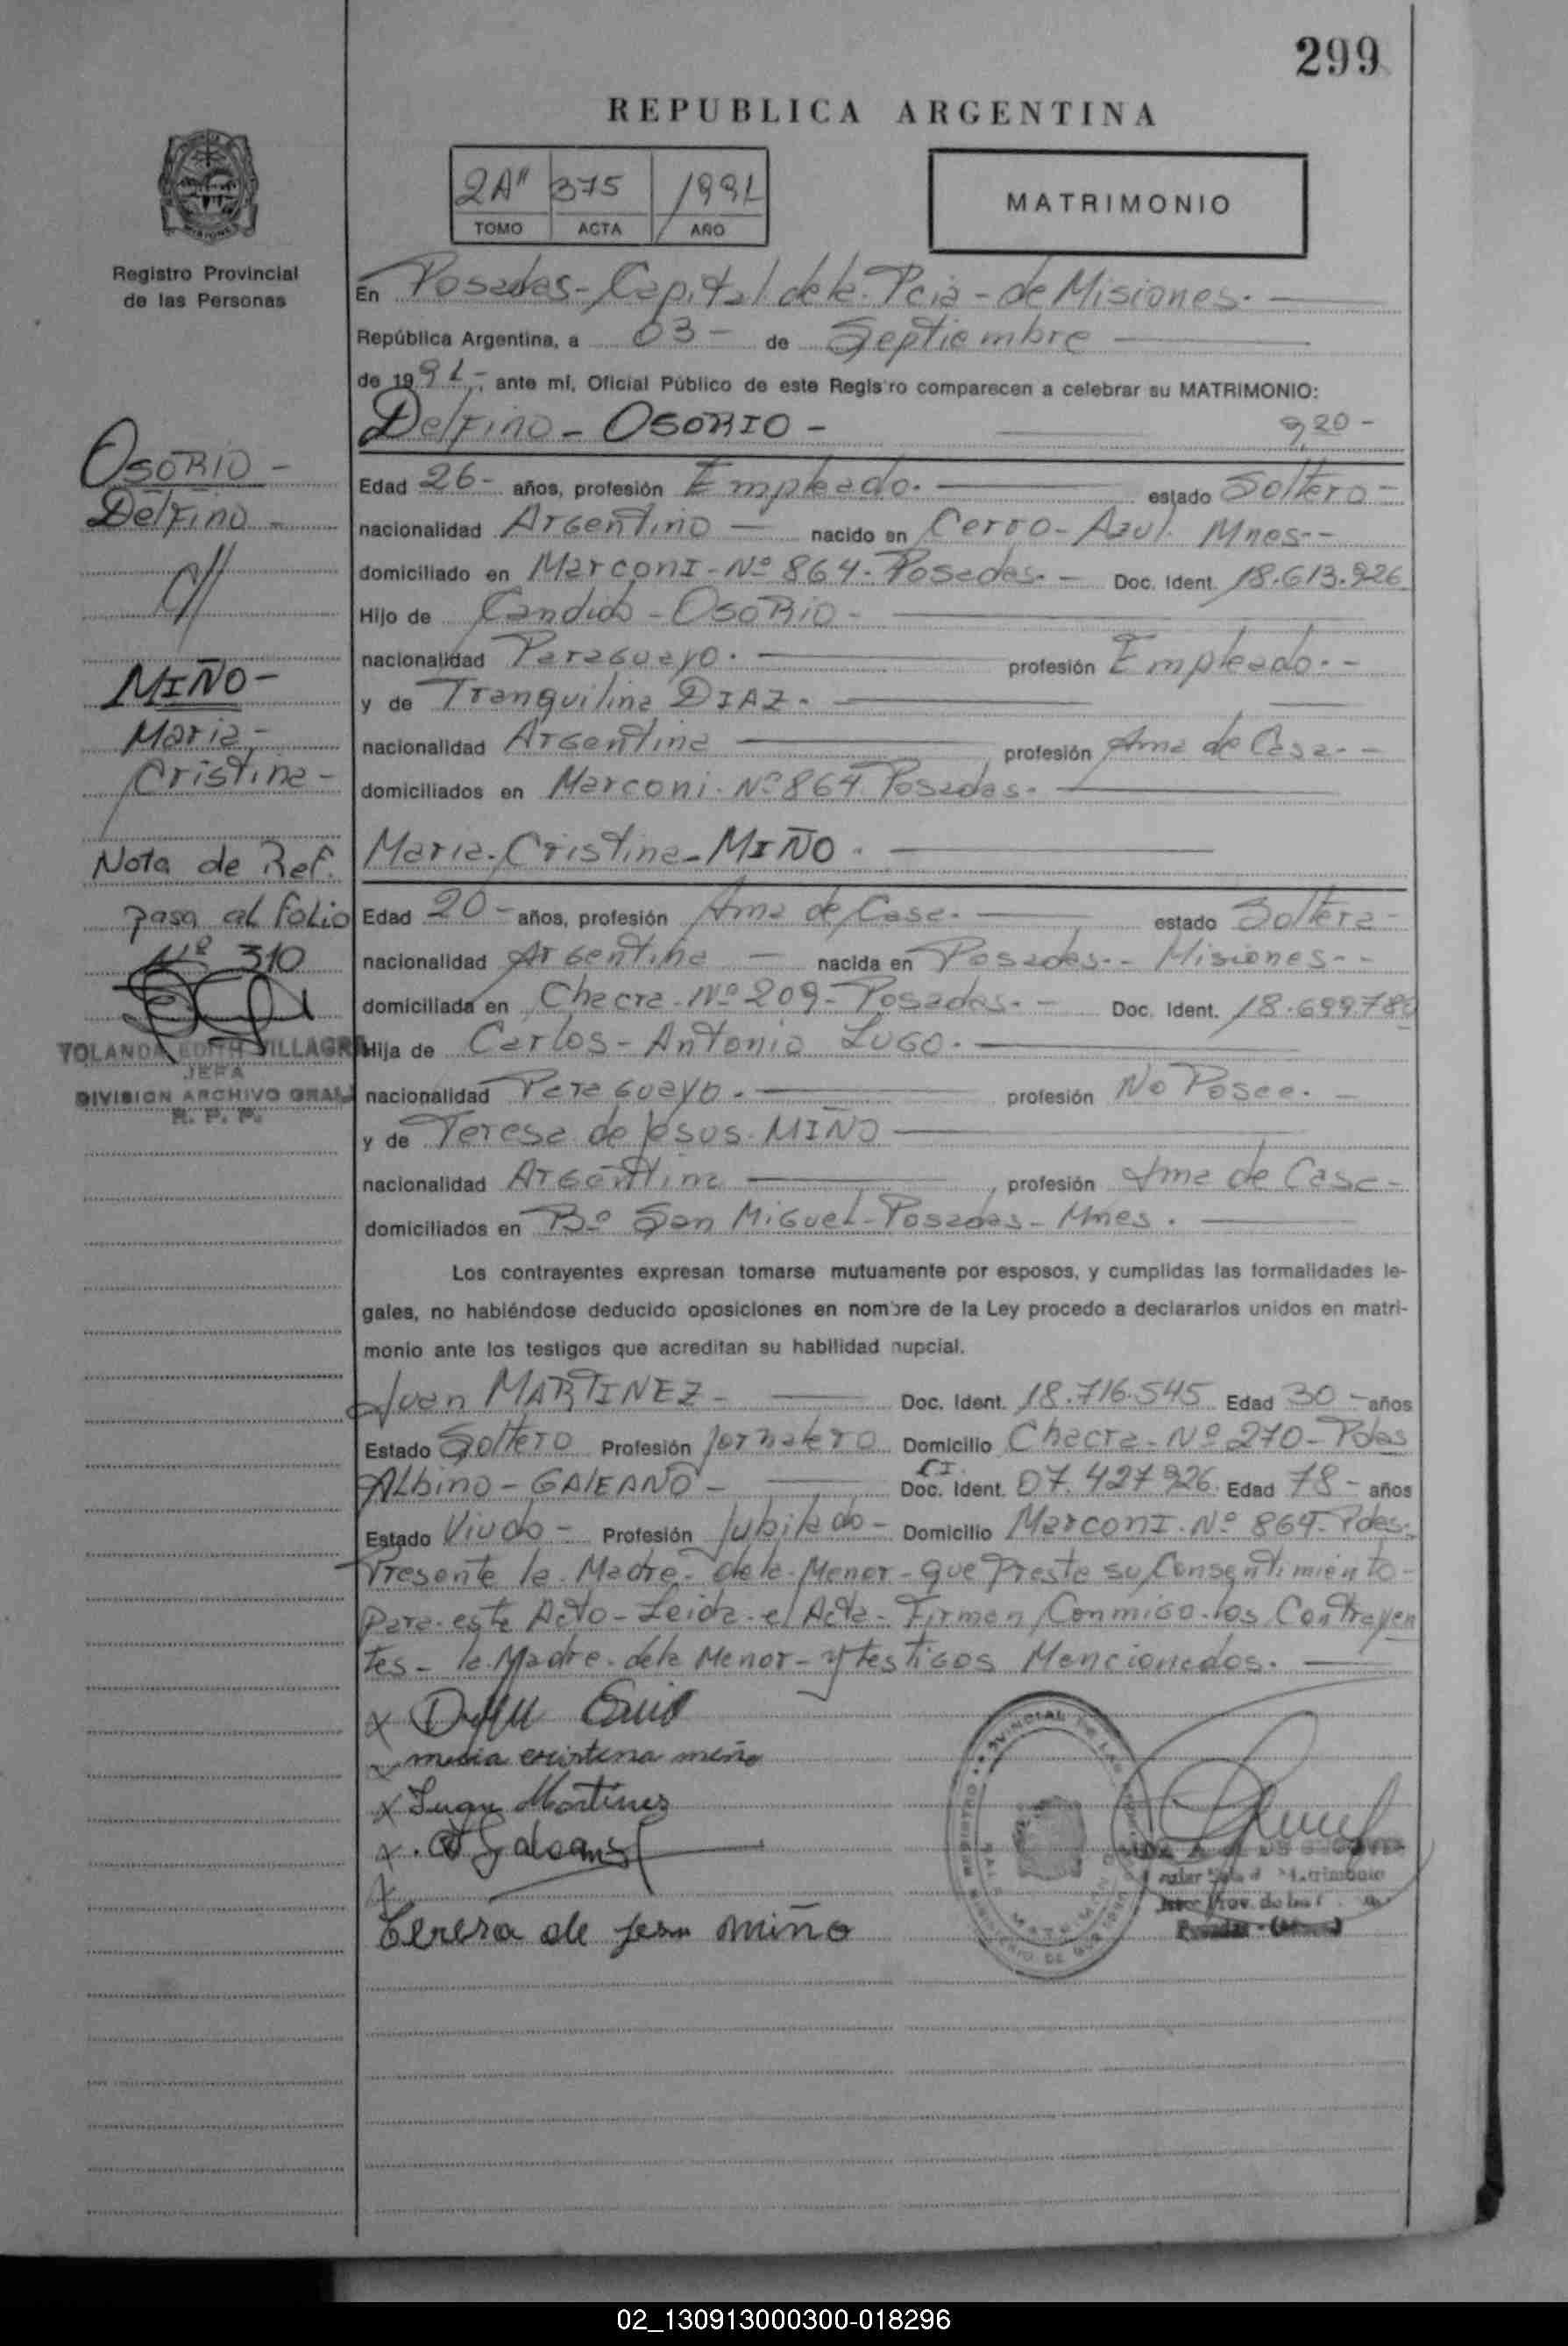 299
REPUBLICA ARGENTINA
2A" 375 1991
TOMO ACTA AÑO
MATRIMONIO
Registro Provincial
de las Personas
En Posadas - Capital de la Pcia - de Misiones. -
República Argentina, a 03 - de Septiembre
de 1991 -, ante mí, Oficial Público de este Registro comparecen a celebrar su MATRIMONIO:
Delfino - OSORIO - 9,20 -
OSORIO -
Delfino -
Edad 26 - años, profesión Empleado. - estado Soltero -
nacionalidad Argentino - nacido en Cerro - Azul. Mnes. -
domiciliado en Marconi - Nº 864. Posadas. - Doc. Ident. 18.613.926
Hijo de Candido - OSORIO -
nacionalidad Paraguayo. - profesión Empleado. -
y de Tranquilina DIAZ. -
nacionalidad Argentina - profesión Ama de Casa. -
domiciliados en Marconi. Nº 864 Posadas. -
MIÑO -
Maria -
Cristina -
Maria - Cristina - MIÑO. -
Nota de Ref.
pasa al folio
Nº 310
YOLANDA EDITH VILLAGRA
JEFA
DIVISION ARCHIVO GRAL
R. P. P.
Edad 20 - años, profesión Ama de Casa. - estado Soltera -
nacionalidad Argentina - nacida en Posadas. - Misiones. -
domiciliada en Chacra - Nº 209 - Posadas. - Doc. Ident. 18.699.780
Hija de Carlos - Antonio LUGO. -
nacionalidad Paraguayo. - profesión No Posee. -
y de Teresa de Jesus. MIÑO -
nacionalidad Argentina - profesión Ama de Casa -
domiciliados en Bº San Miguel - Posadas - Mnes. -
Los contrayentes expresan tomarse mutuamente por esposos, y cumplidas las formalidades le-
gales, no habiéndose deducido oposiciones en nombre de la Ley procedo a declararlos unidos en matri-
monio ante los testigos que acreditan su habilidad nupcial.
Juan MARTINEZ - Doc. Ident. 18.716.545 Edad 30 - años
Estado Soltero Profesión Jornalero Domicilio Chacra - Nº 270 - Pdas
Albino - GALEANO - CI. Doc. Ident. 07.427.926. Edad 78 - años
Estado Viudo - Profesión Jubilado - Domicilio Marconi. Nº 864 - Pdas.
Presente la Madre - de la Menor - que Presta su Consentimiento -
Para este Acto - Leida el Acta - Firman Conmigo los Contrayen
tes - la Madre de la Menor - y testigos Mencionados. -
x
maria cristina miño
x Juan Martinez
x. A Galeano
x
Teresa de Jesu miño
02_130913000300-018296